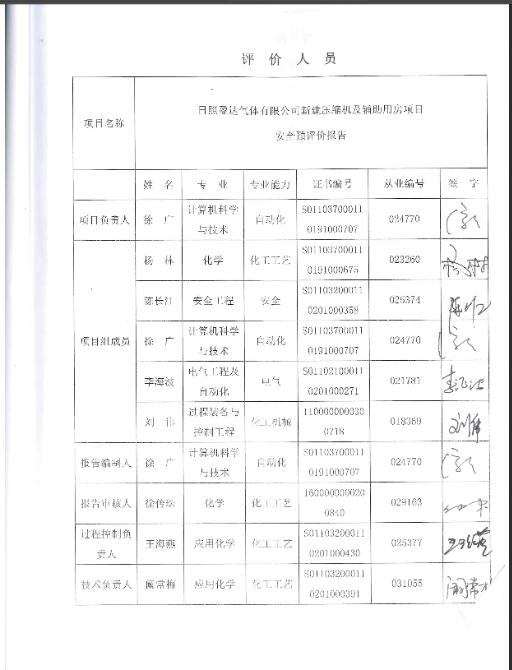 评 价 人 员
项目名称
日照盈达气体有限公司新建压缩机及辅助用房项目
安全预评价报告
姓 名 专 业 专业能力 证书编号 从业编号 签 字
项目负责人 徐 广 计算机科学与技术 自动化 S011037000110191000707 024770
项目组成员
杨 林 化学 化工工艺 S011037000110191000675 023260
陈长江 安全工程 安全 S011032000110201000358 025374
徐 广 计算机科学与技术 自动化 S011037000110191000707 024770
李海波 电气工程及自动化 电气 S011021000110201000271 021781
刘 伟 过程装备与控制工程 化工机械 1100000000300718 018369
报告编制人 徐 广 计算机科学与技术 自动化 S011037000110191000707 024770
报告审核人 徐传珠 化学 化工工艺 1600000000200840 029163
过程控制负责人 王海燕 应用化学 化工工艺 S011032000110201000430 025377
技术负责人 常梅 应用化学 化工工艺 S011032000110201000391 031055